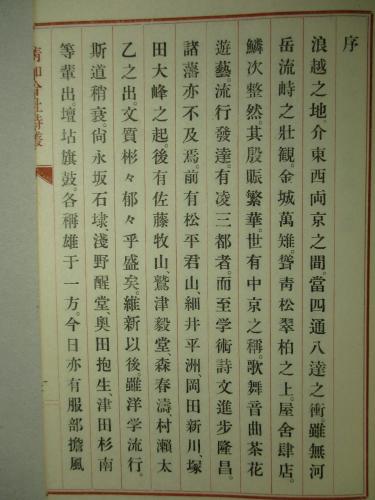 序
浪越之地。介東西両京之間。當四通八達之衝。雖無河
岳流峙之壯觀。金城萬雉。聳青松翠柏之上。屋舍肆店。
鱗次整然。其殷賑繁華。世有中京之稱。歌舞音曲茶花
遊藝。流行發達。有凌三都者。而至學術詩文進步隆昌。
諸藩亦不及焉。前有松平君山、細井平洲、岡田新川、塚
田大峰之起。後有佐藤牧山、鷲津毅堂、森春濤、村瀨太
乙之出。文質彬々郁々乎盛矣。維新以後雖洋学流行。
斯道稍衰。尙永坂石埭、淺野醒堂、奥田抱生、津田杉南
等輩出。壇坫旗鼓。各稱雄于一方。今日亦有服部擔風